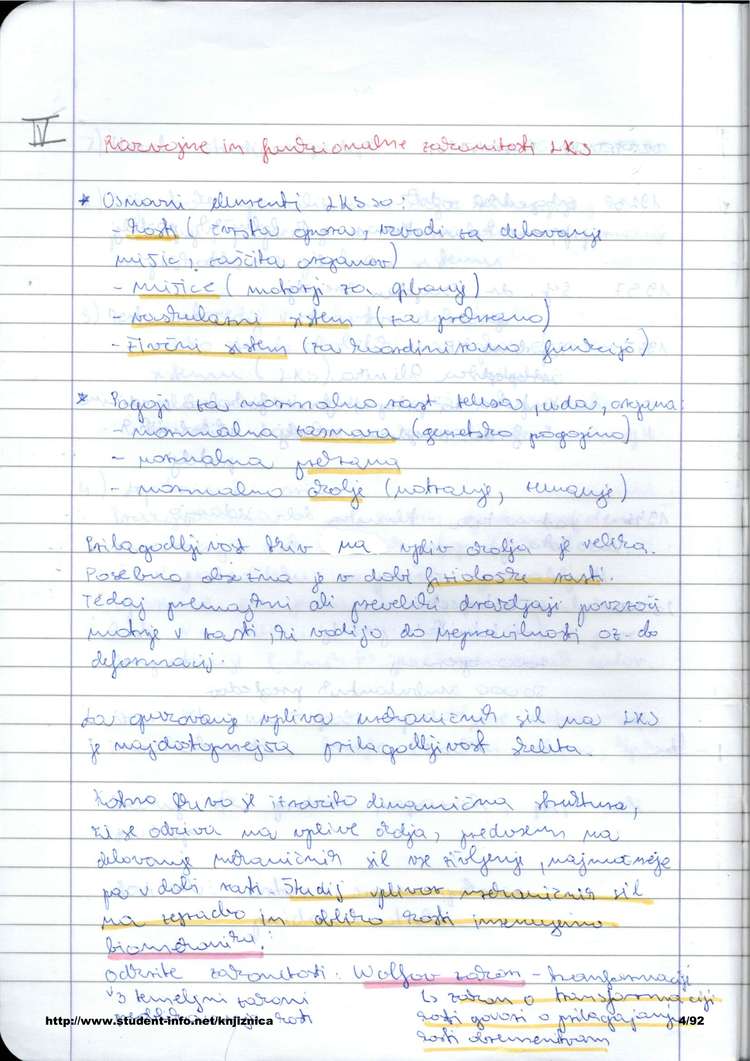 IV
Razvojne in funkcionalne zakonitosti LKS
* Osnovni elementi LKS so:
- kosti (čvrsta opora, vzvodi za delovanje
mišic, zaščita organov)
- mišice (motorji za gibanje)
- vaskularni sistem (za prehrano)
- živčni sistem (za koordinirano funkcijo)
* Pogoji za normalno rast telesa, uda, organa:
- normalna zasnova (genetsko pogojeno)
- normalna prehrana
- normalno okolje (notranje, zunanje)
Prilagodljivost tkiv na vpliv okolja je velika.
Posebno obsežna je v dobi fiziološke rasti.
Tedaj premajhni ali preveliki dražljaji povzroči
motnje v rasti, ki vodijo do nepravilnosti oz. do
deformacij.
Za opazovanje vpliva mehaničnih sil na LKS
je najdostopnejša prilagodljivost skeleta.
Kostno tkivo je izrazito dinamična struktura,
ki se odziva na vplive okolja, predvsem na
delovanje mehaničnih sil vse življenje, najmočneje
pa v dobi rasti. Študij vplivov mehaničnih sil
na zgradbo in obliko kosti imenujemo
biomehanika.
Odkrite zakonitosti: Wolfov zakon - transformacije
3 temeljni zakoni
↳ zakon o transformaciji
kosti govori o prilagajanju
kosti obremenitvam
http://www.student-info.net/knjiznica
4/92